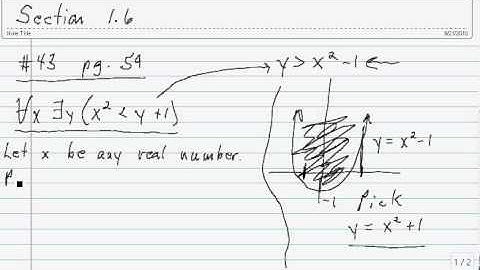 Section 1.6
Note Title
9/21/2010
#43 pg. 54
∀x ∃y (x² < y + 1)
Let x be any real number.
P
y > x² - 1 ←
y = x² - 1
-1
Pick
y = x² + 1
1 / 2